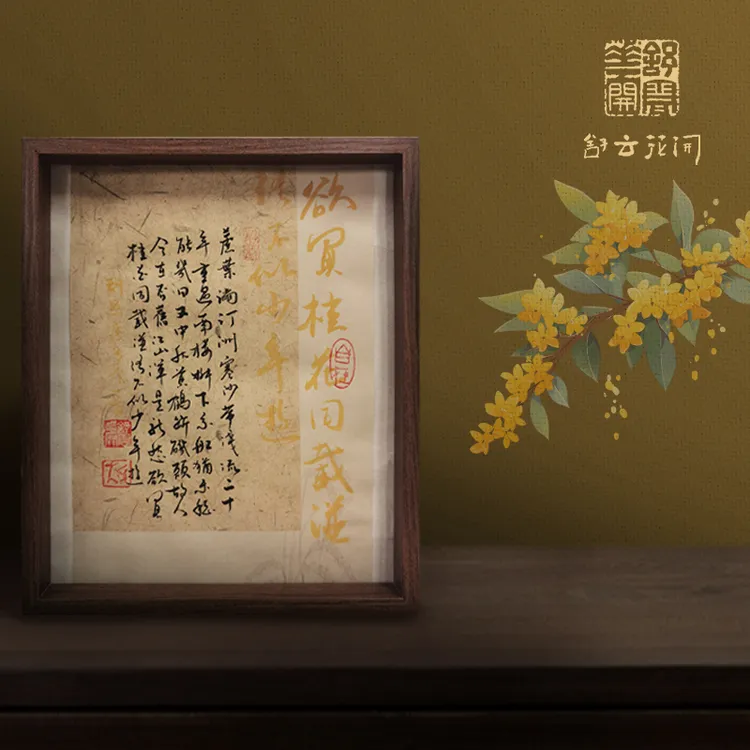 舒雲
華開
舒云花开
欲買桂花同載酒
終不似少年遊
蘆葉滿汀洲寒沙帶淺流二十
年重過南樓柳下系船猶未穩
能幾日又中秋黃鶴斷磯頭故人
今在否舊江山渾是新愁欲買
桂花同載酒終不似少年遊